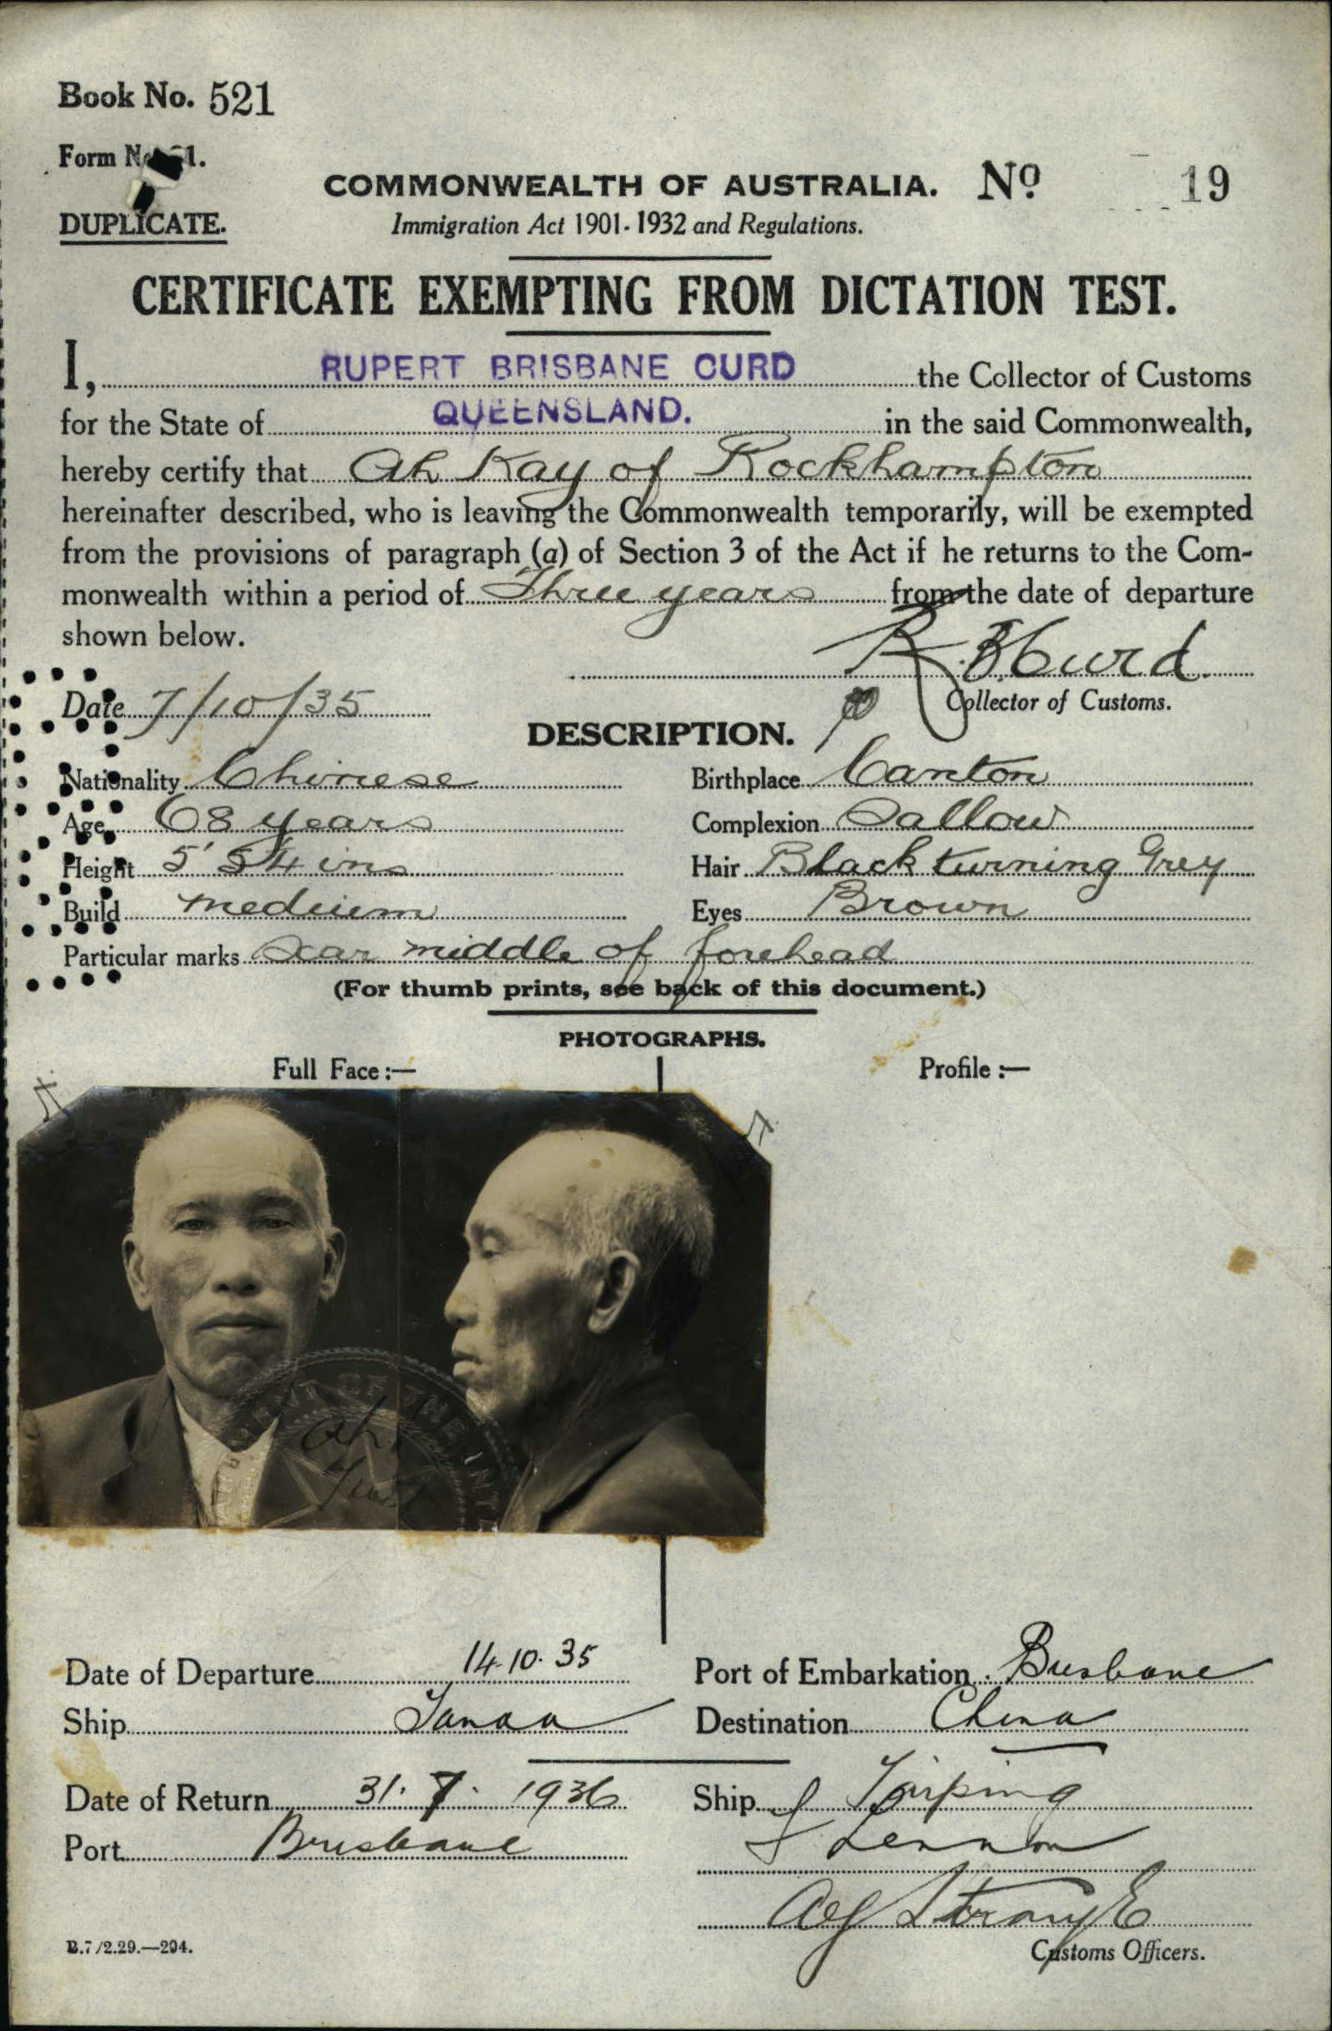 Book No. 521
Form No. 21.
DUPLICATE.
COMMONWEALTH OF AUSTRALIA. No 19
Immigration Act 1901-1932 and Regulations.
CERTIFICATE EXEMPTING FROM DICTATION TEST.
I, RUPERT BRISBANE CURD the Collector of Customs
for the State of QUEENSLAND. in the said Commonwealth,
hereby certify that Ah Kay of Rockhampton
hereinafter described, who is leaving the Commonwealth temporarily, will be exempted
from the provisions of paragraph (a) of Section 3 of the Act if he returns to the Com-
monwealth within a period of Three years from the date of departure
shown below.
R. B. Curd.
Date 7/10/35 Collector of Customs.
DESCRIPTION.
Nationality Chinese Birthplace Canton
Age 68 years Complexion Sallow
Height Hair Black turning Grey
Build medium Eyes Brown
Particular marks Scar middle of forehead
(For thumb prints, see back of this document.)
PHOTOGRAPHS.
Full Face:— Profile:—
OF THE INT
Ah
Date of Departure 14.10.35 Port of Embarkation Brisbane
Ship Tanda Destination China
Date of Return 31. 7. 1936 Ship Taiping
Port Brisbane Lennon
Customs Officers.
B.7/2.29.—294.